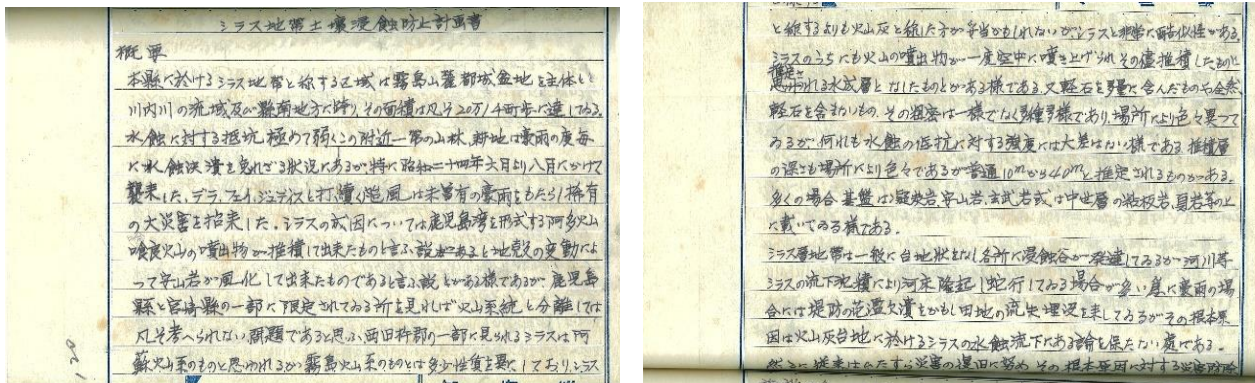 シラス地帯土壌浸蝕防止計画書
概要
本縣に於けるシラス地帯と称する区域は霧島山麓都城盆地を主体とし
川内川の流域及び縣南地方に跨り、その面積は凡そ20万14町歩に達してゐる。
水蝕に対する抵抗極めて弱くこの附近一帯の山林、耕地は豪雨の度毎
に水蝕決潰を免れざる状況にあるが特に昭和二十四年六月より八月にかけて
襲来した、デラ、フェイ、ジュディスと打續く颱風は未曽有の豪雨をもたらし稀有
の大災害を招来した。シラスの成因については鹿児島湾を形式する阿多火山
喰良火山の噴出物が堆積して出来たものと言ふ説があると地殻の変動によ
って安山岩が風化して出来たものであると言ふ説とがある様であるが、鹿児島
縣と宮崎縣の一部に限定されてゐる所を見れば火山系統と分離しては
凡そ考へられない問題であると思ふ。西臼杵郡の一部に見られるシラスは阿
蘇火山系のものと思われるが霧島火山系のものとは多少性質を異にしており、シラス
と称するよりも火山灰と称した方が妥当かもしれないが、シラスと非常に酷似性がある。
シラスのうちにも火山の噴出物が一度空中に噴き上げられその侭堆積したものと
推定さ
思われる水成層となしたものとがある様である。又軽石を多量に含んだものや全然
軽石を含まないもの、その粗密は一様でなく多種多様であり、場所により色々異って
ゐるが、何れも水蝕の抵抗に対する強度には大差はない様である。堆積層
の深さも場所により色々であるが普通10mから40mと推定されるものがある。
多くの場合基盤は凝灰岩、安山岩、玄武岩或は中世層の粘板岩、頁岩等の上
に載いてゐる様である。
シラス層地帯は一般に台地状をなし各所に浸蝕谷が発達してゐるが河川等
シラスの流下堆積により河床隆起し蛇行してゐる場合が多い。為に豪雨の場
合には堤防の氾濫欠潰をかもし田地の流失埋没を来してゐるがその根本原
因は火山灰台地に於けるシラスの水蝕流下にある論を保たない處である。
然るに従来はひたすら災害の復旧に努め、その根本原因に対する